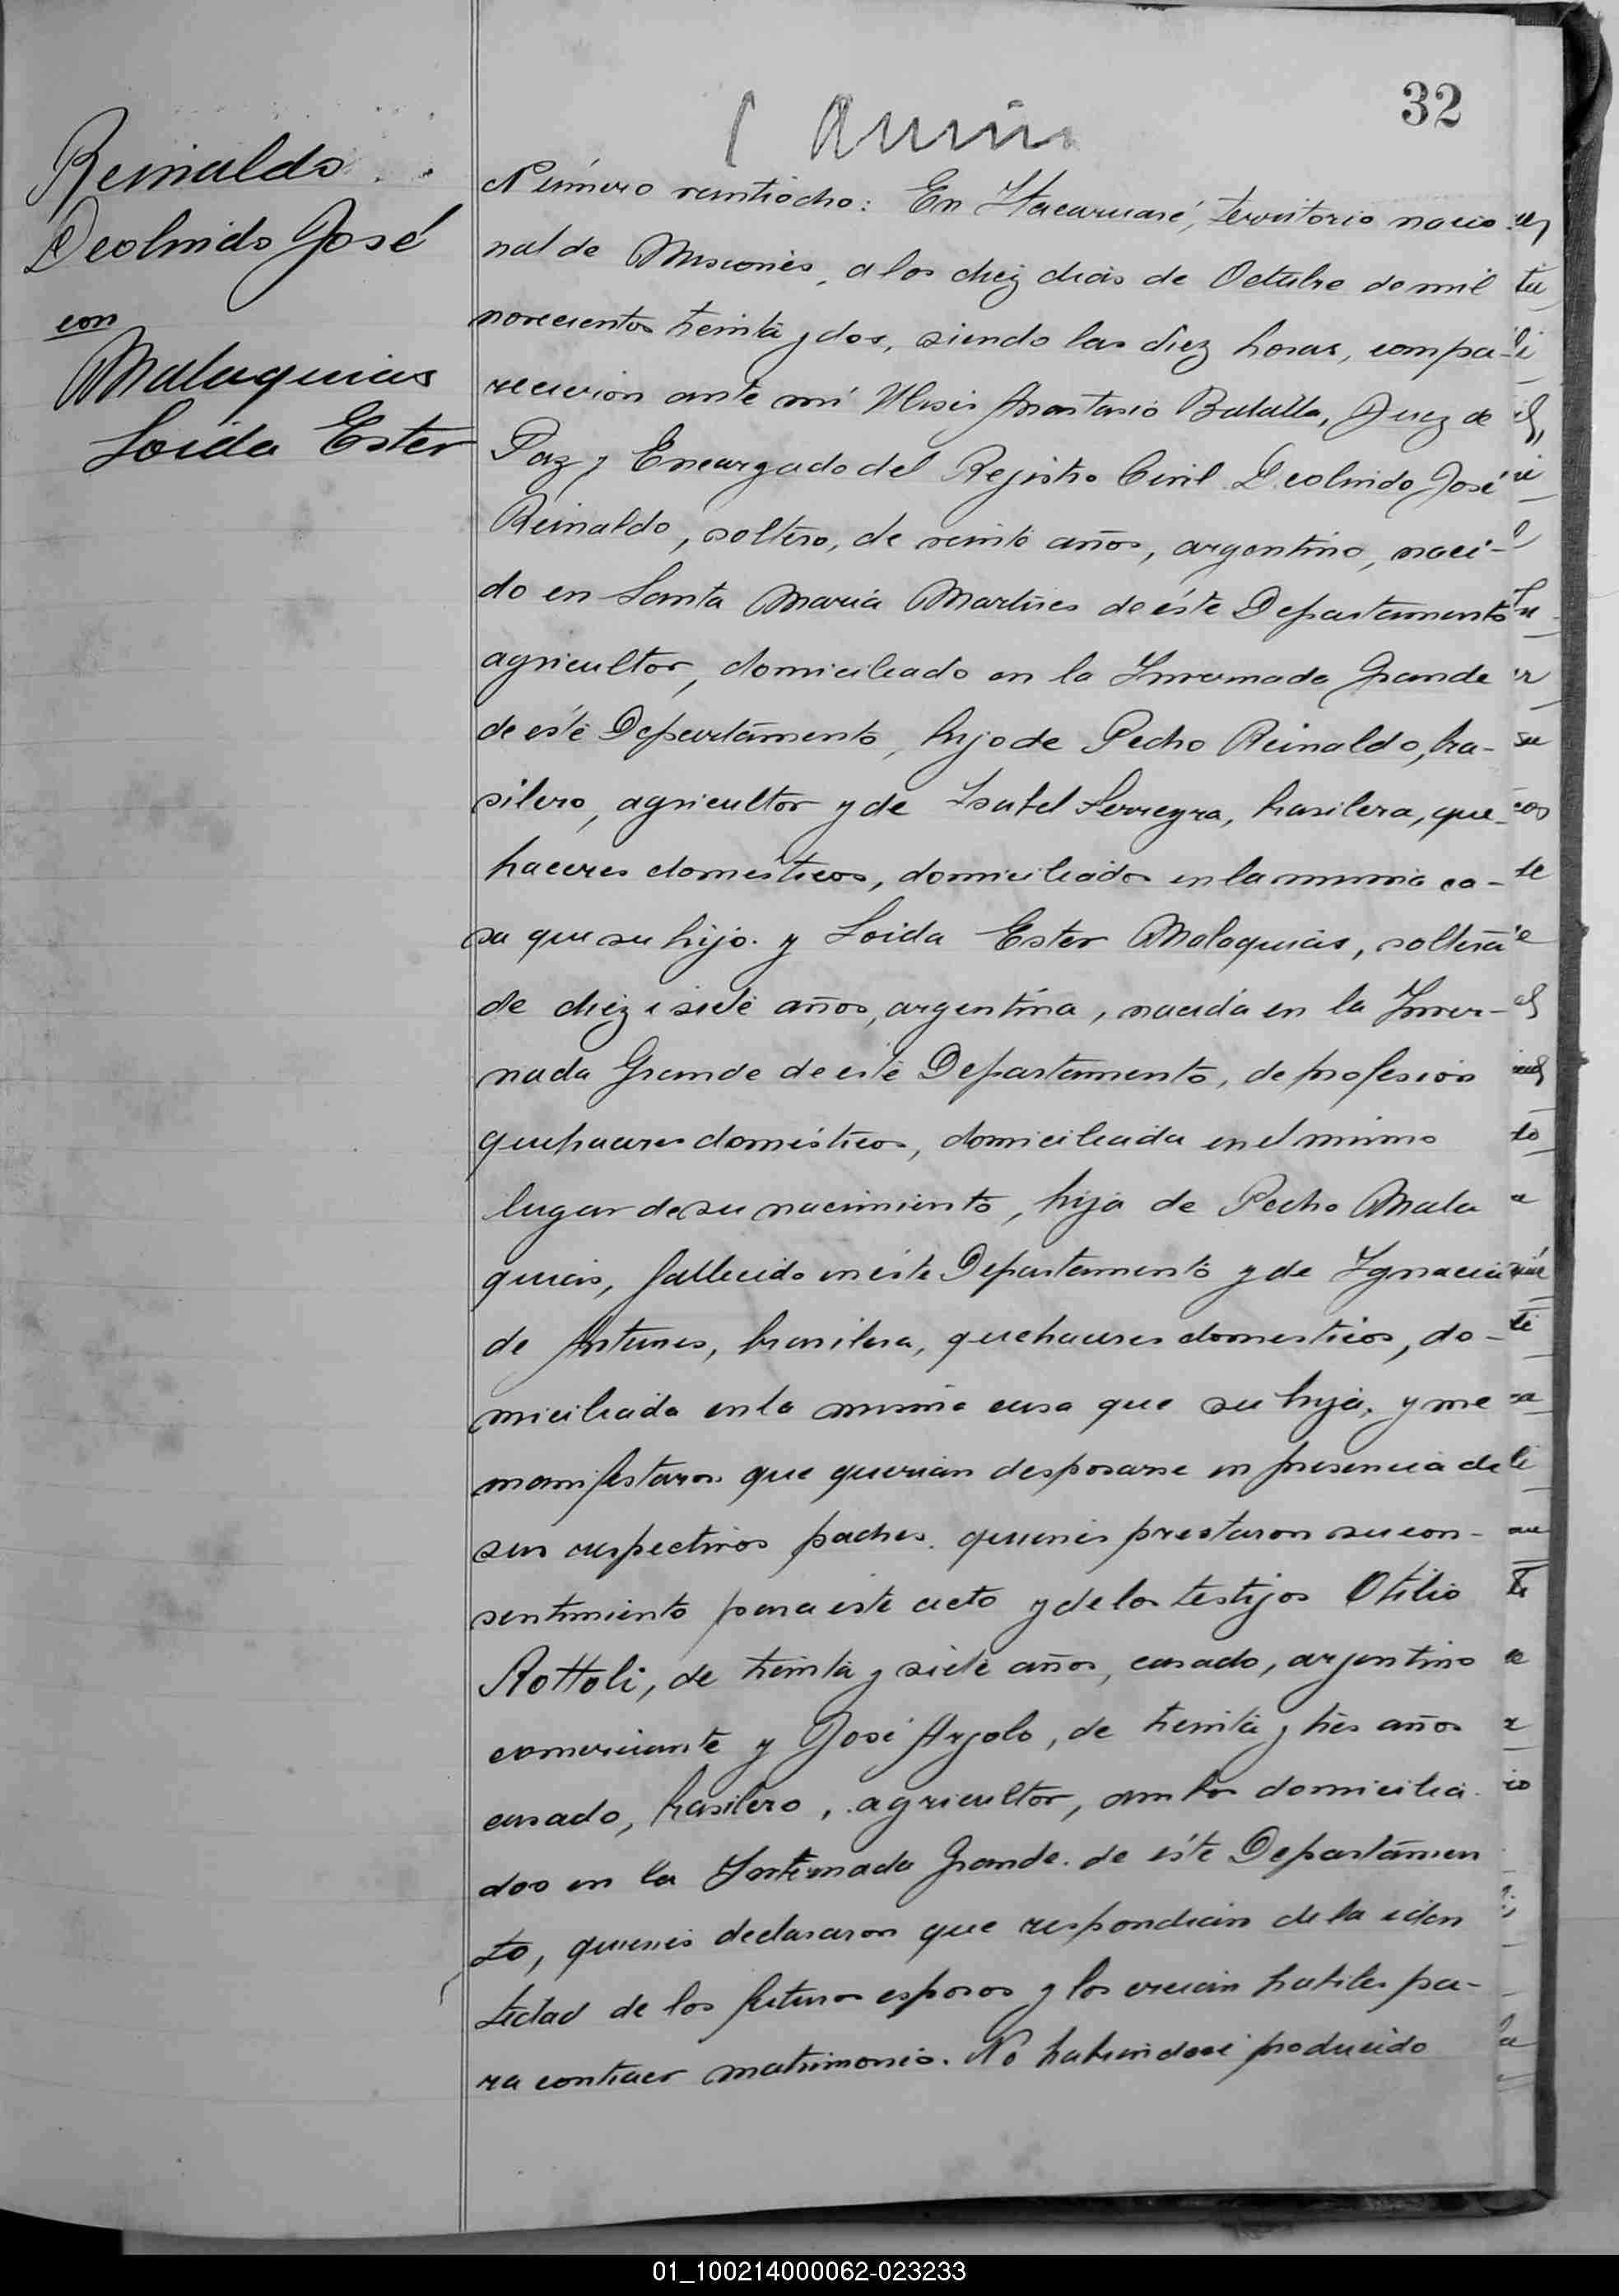 32
Reinaldo
Deolindo José
con
Malaquias
Loida Ester
Número veintiocho: En Itacaruaré, territorio nacio
nal de Misiones, a los diez dias de Octubre de mil
novecientos treinta y dos, siendo las diez horas, compa-
recieron ante mi Ulises Anastasio Batalla, Juez de
Paz y Encargado del Rejistro Civil Deolindo José
Reinaldo, soltero, de veinte años, argentino, naci-
do en Santa Maria Martires de éste Departamento
agricultor, domiciliado en la Invernada Grande
de éste Departamento, hijo de Pedro Reinaldo, bra-
silero, agricultor y de Isabel Ferreyra, brasilera, que-
haceres domésticos, domiciliados en la misma ca-
sa que su hijo. y Loida Ester Malaquias, soltera
de diez i siete años, argentina, nacida en la Inver-
nada Grande de este Departamento, de profesion
quehaceres domésticos, domiciliada en el mismo
lugar de su nacimiento, hija de Pedro Mala
quias, fallecido en este Departamento y de Ignacia
de Antunes, brasilera, quehaceres domesticos, do-
miciliada en la misma casa que su hija, y me
manifestaron que querian desposarse en presencia de
sus respectivos padres. quienes prestaron su con-
sentimiento para este acto y de los testijos Otilio
Rottoli, de treinta y siete años, casado, arjentino
comerciante y José Arjolo, de treinta y tres años
casado, brasilero, agricultor, ambos domicilia
dos en la Invernada Grande. de éste Departamen
to, quienes declararon que respondian de la iden
tidad de los futuros esposos y los creian habiles pa-
ra contraer matrimonio. No habiendose producido
01_100214000062-023233